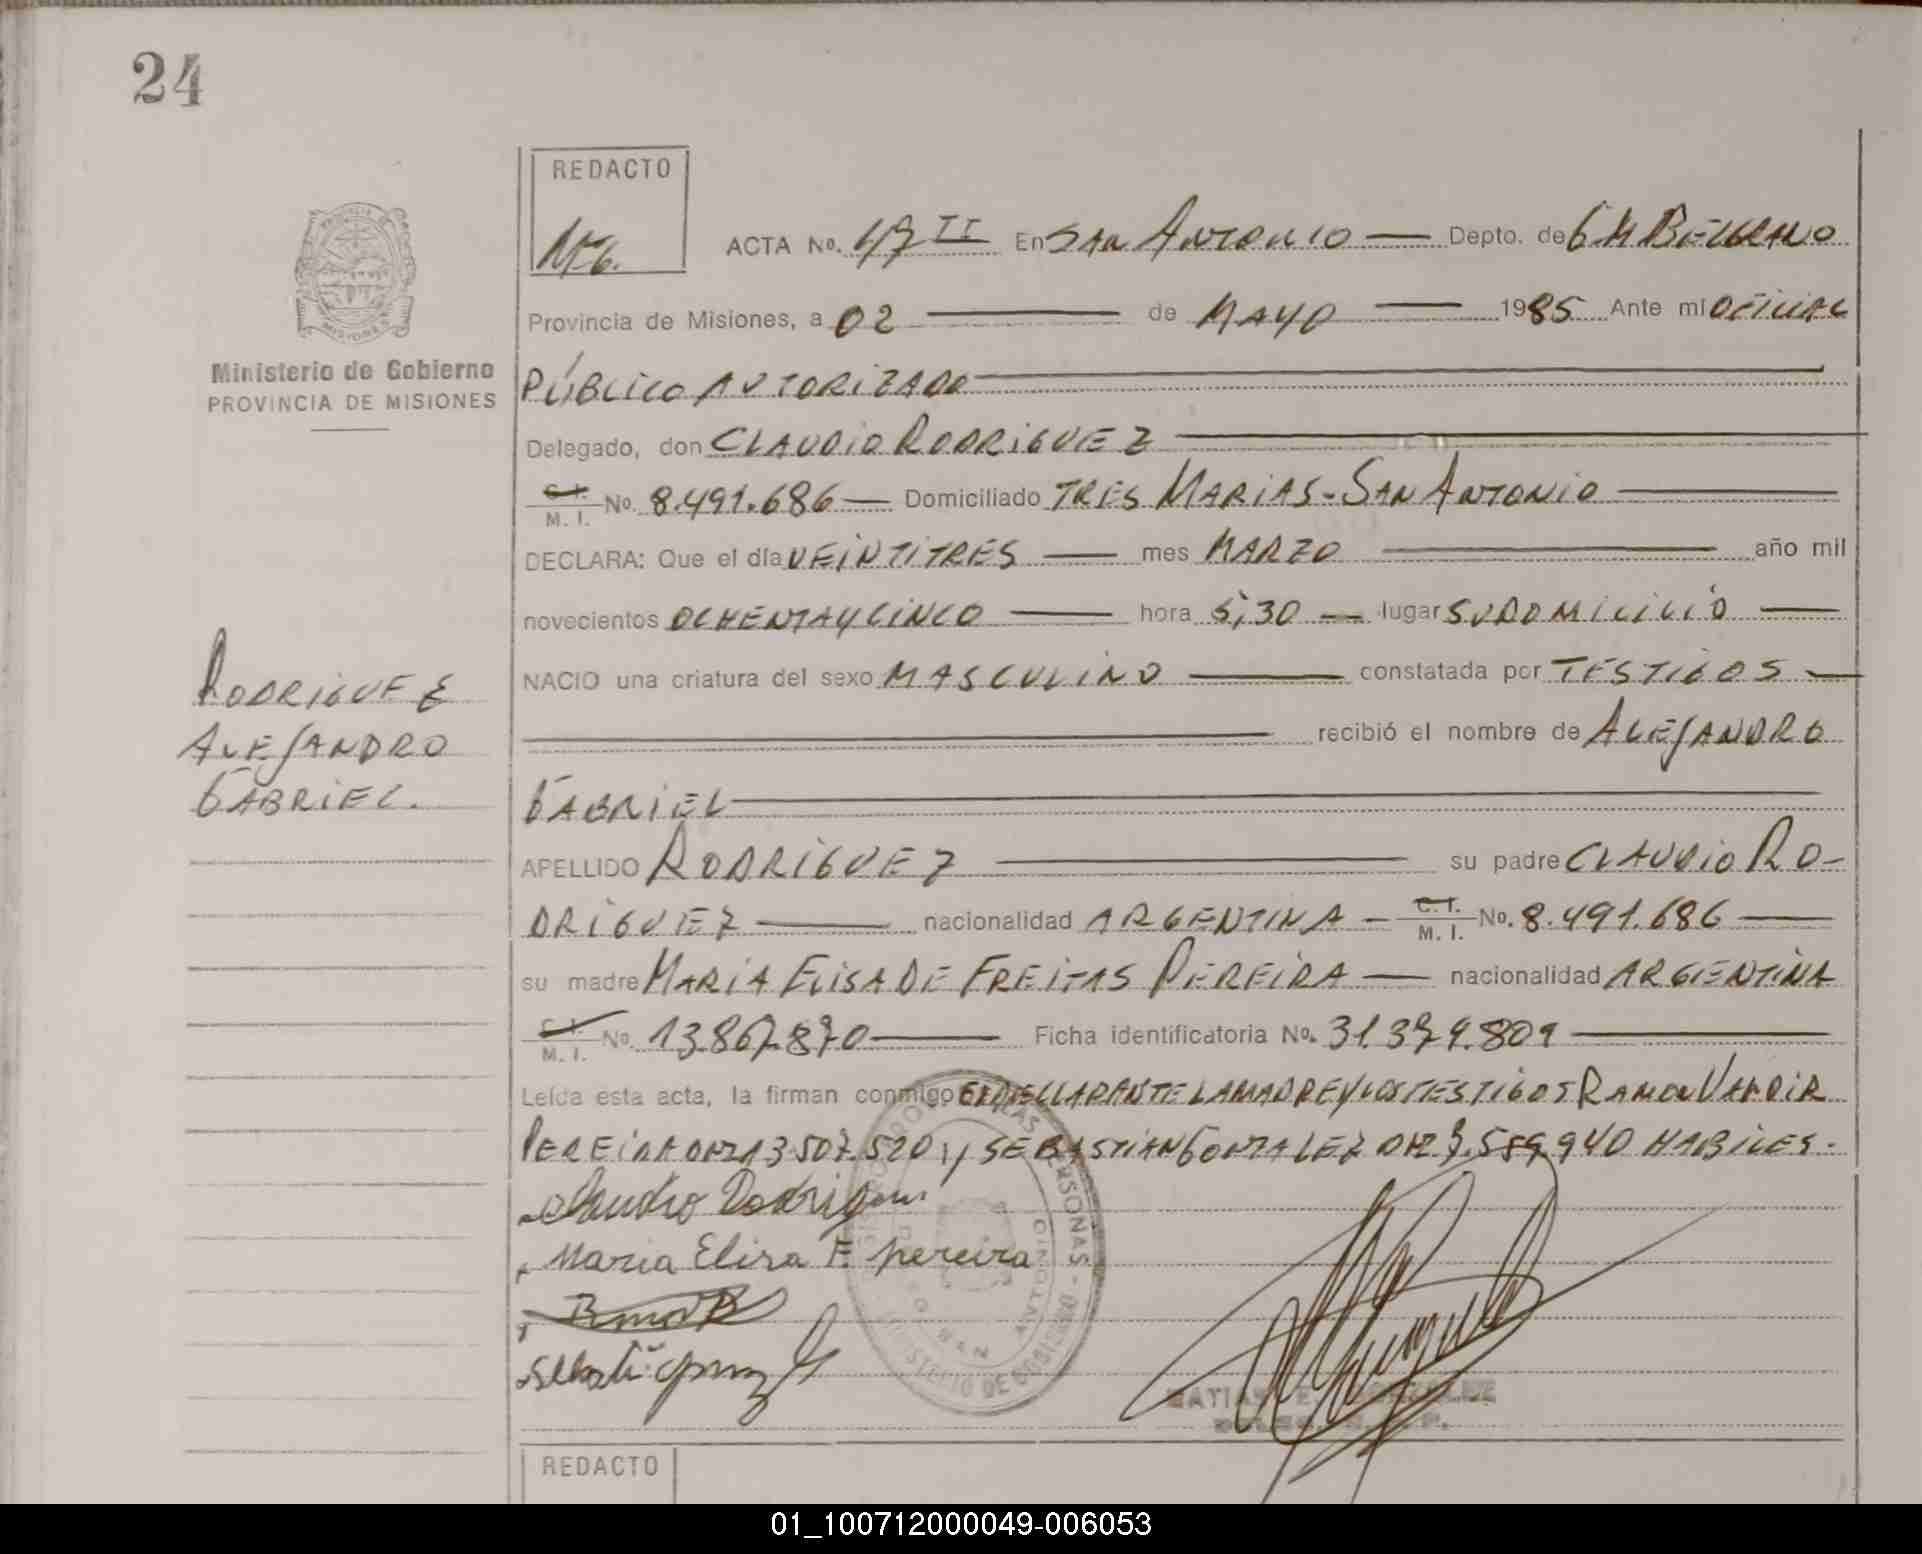 24
REDACTO
ACTA No. 47 II En SAN ANTONIO — Depto. de G M BELGRANO
Provincia de Misiones, a 02 — de MAYO — 1985 Ante mi OFICIAL
Ministerio de Gobierno
PROVINCIA DE MISIONES
PÚBLICO AUTORIZADO
Delegado, don CLAUDIO RODRIGUEZ
C. I. M. I. No. 8.491.686 — Domiciliado TRES MARIAS - SAN ANTONIO
DECLARA: Que el día VEINTITRES — mes MARZO — año mil
novecientos OCHENTA Y CINCO — hora 5,30 — lugar SU DOMICILIO —
NACIO una criatura del sexo MASCULINO — constatada por TESTIGOS —
RODRIGUEZ
ALEJANDRO
GABRIEL.
recibió el nombre de ALEJANDRO
GABRIEL
APELLIDO RODRIGUEZ — su padre CLAUDIO RO-
DRIGUEZ — nacionalidad ARGENTINA — C. I. M. I. No. 8.491.686 —
su madre MARIA ELISA DE FREITAS PEREIRA — nacionalidad ARGENTINA
C. I. M. I. No. 13.867.870 — Ficha identificatoria No. 31.379.809 —
Leída esta acta, la firman conmigo EL DECLARANTE LA MADRE Y LOS TESTIGOS RAMON VALDIR
PEREIRA 13.507.520 y SEBASTIAN GONZALEZ 7.589.940 HABILES.
Claudio Rodriguez
Maria Elisa F. pereira
PERSONAS
SAN ANTONIO
MINISTERIO DE GOBIERNO
REDACTO
01_100712000049-006053